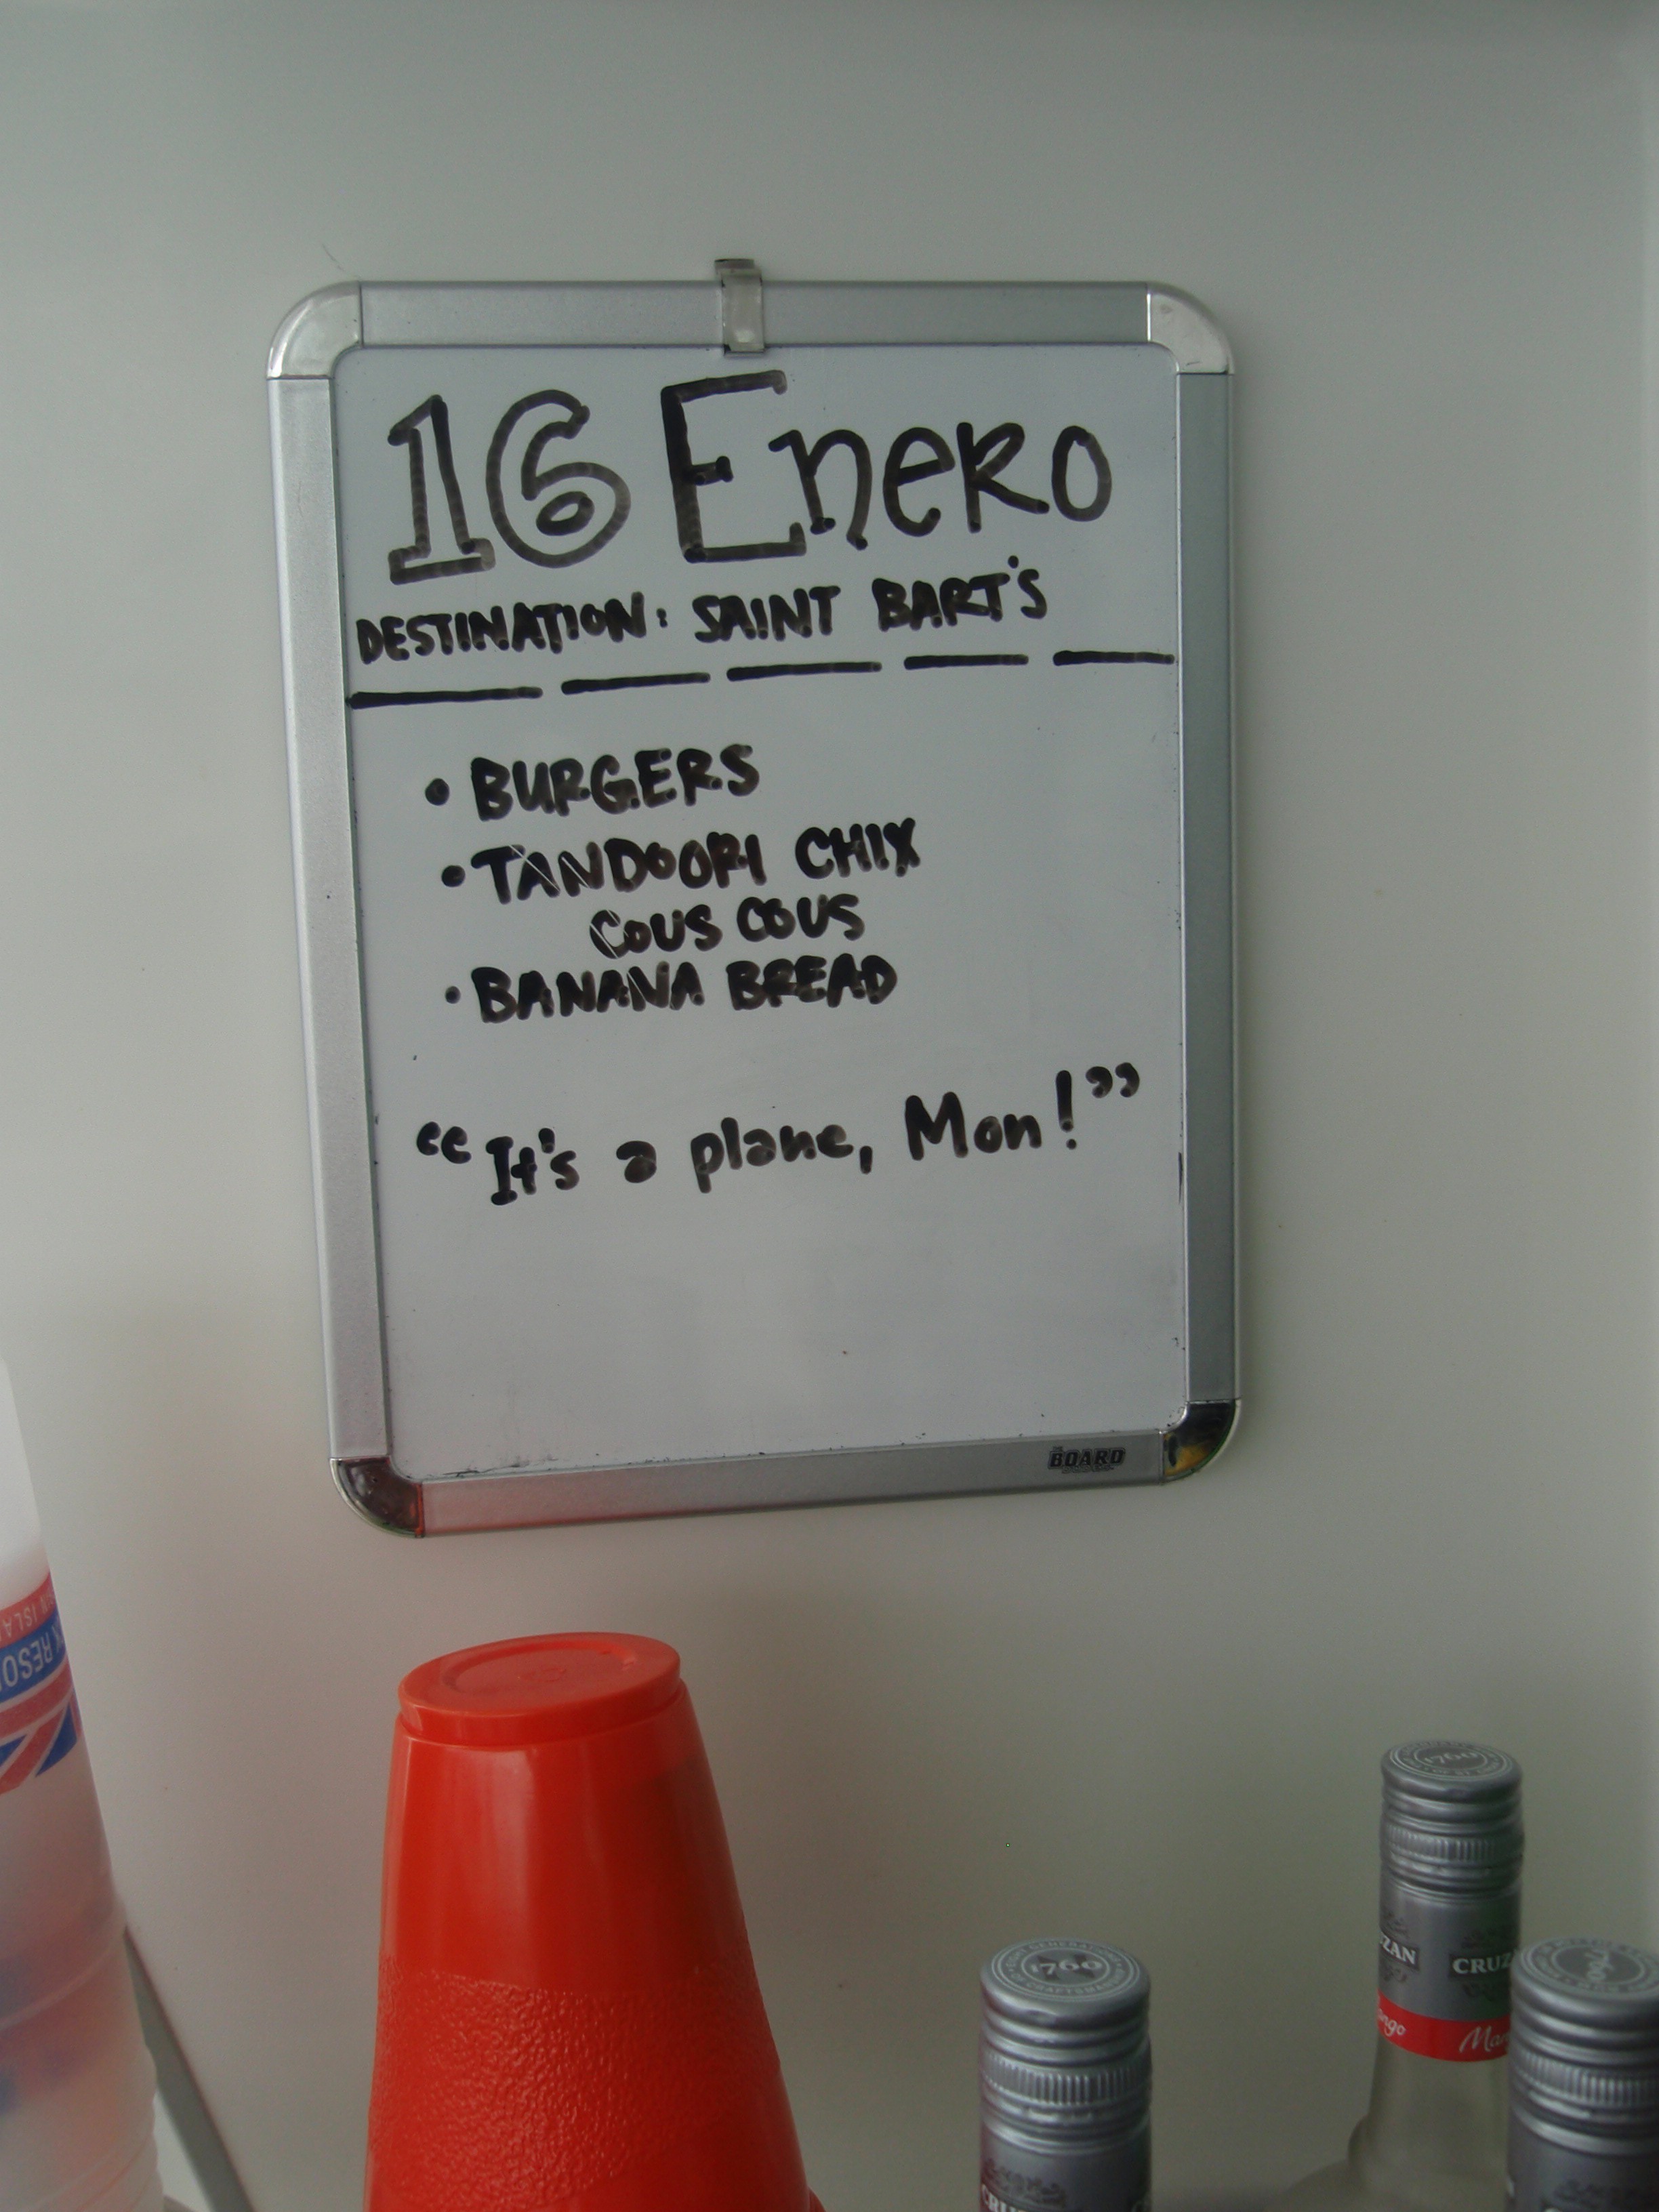 16 Enero
DESTINATION: SAINT BART'S
• BURGERS
• TANDOORI CHIX
COUS COUS
• BANANA BREAD
“It's a plane, Mon!”
THE BOARD
RESO
1760
1760
CRUZ
Man